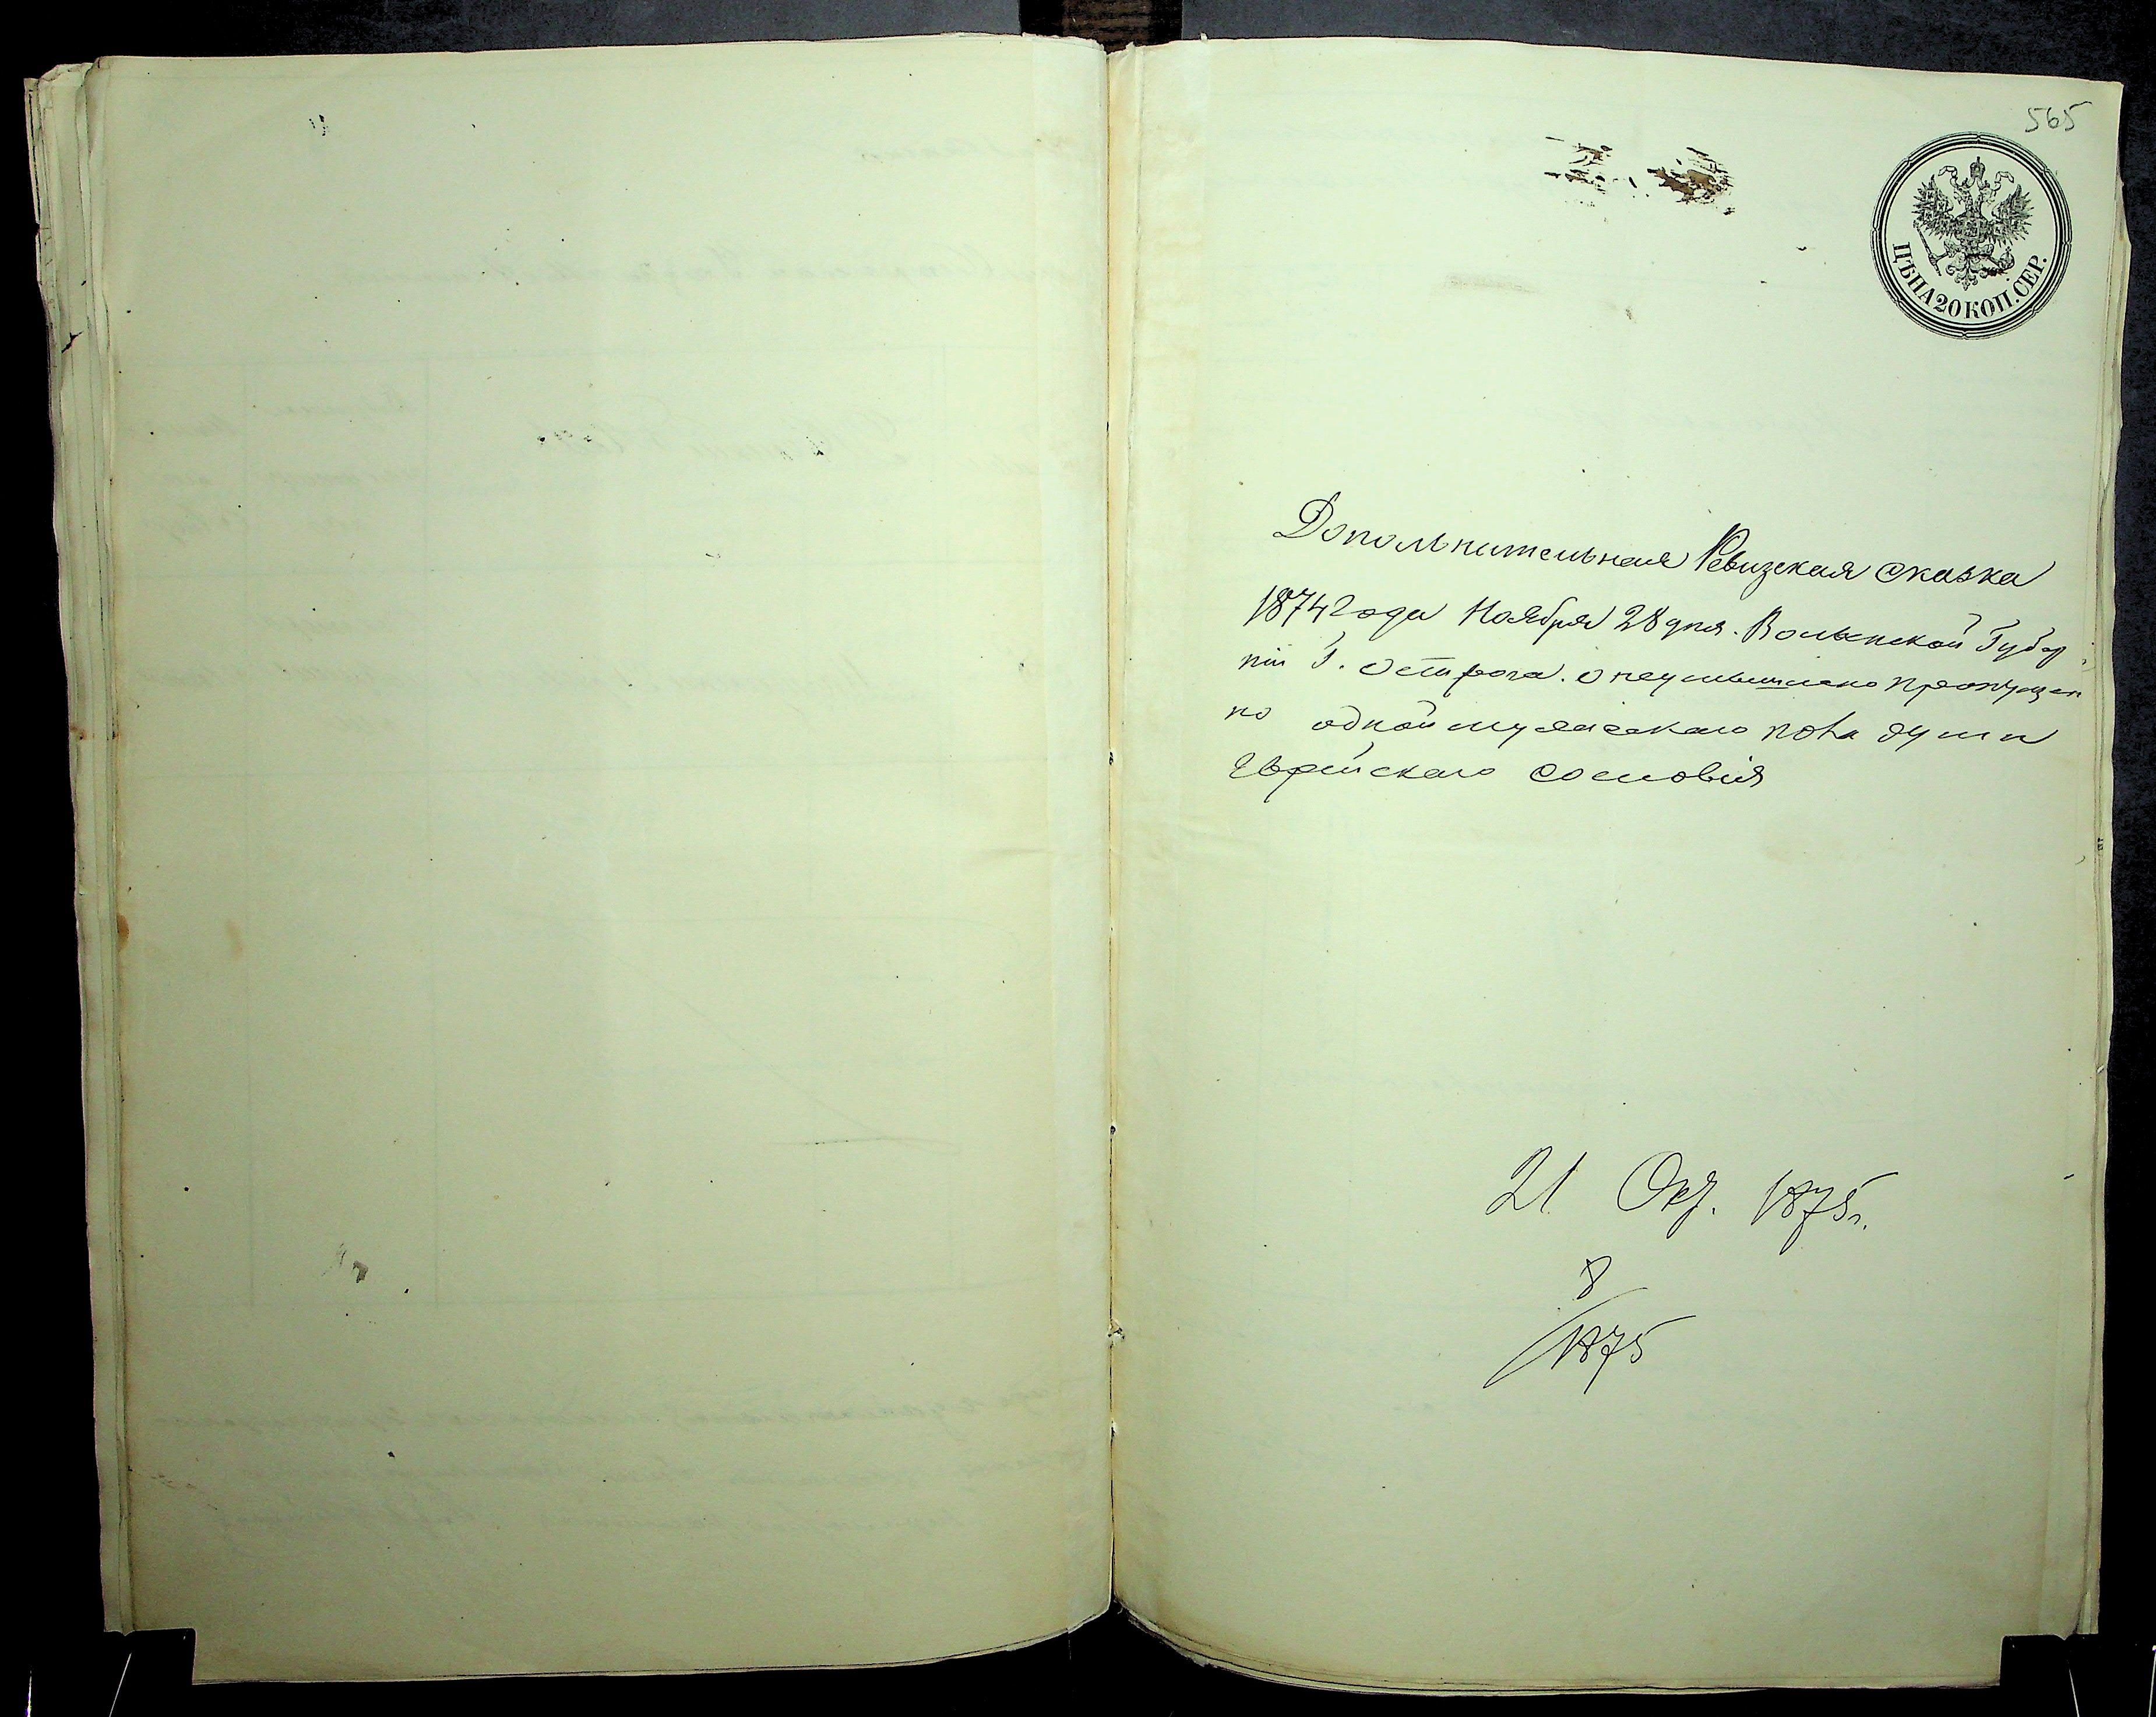 565
ЦѢНА 20 КОП. СЕР.
Дополнительная Ревизская сказка
1874 года Ноября 28 дня. Волынской Губер
ніи Г. Острога. о неумышлено пропущен
но одной мужескаго пола души
Еврейскаго сословія
21 Окт. 1875 г.
8
/1875